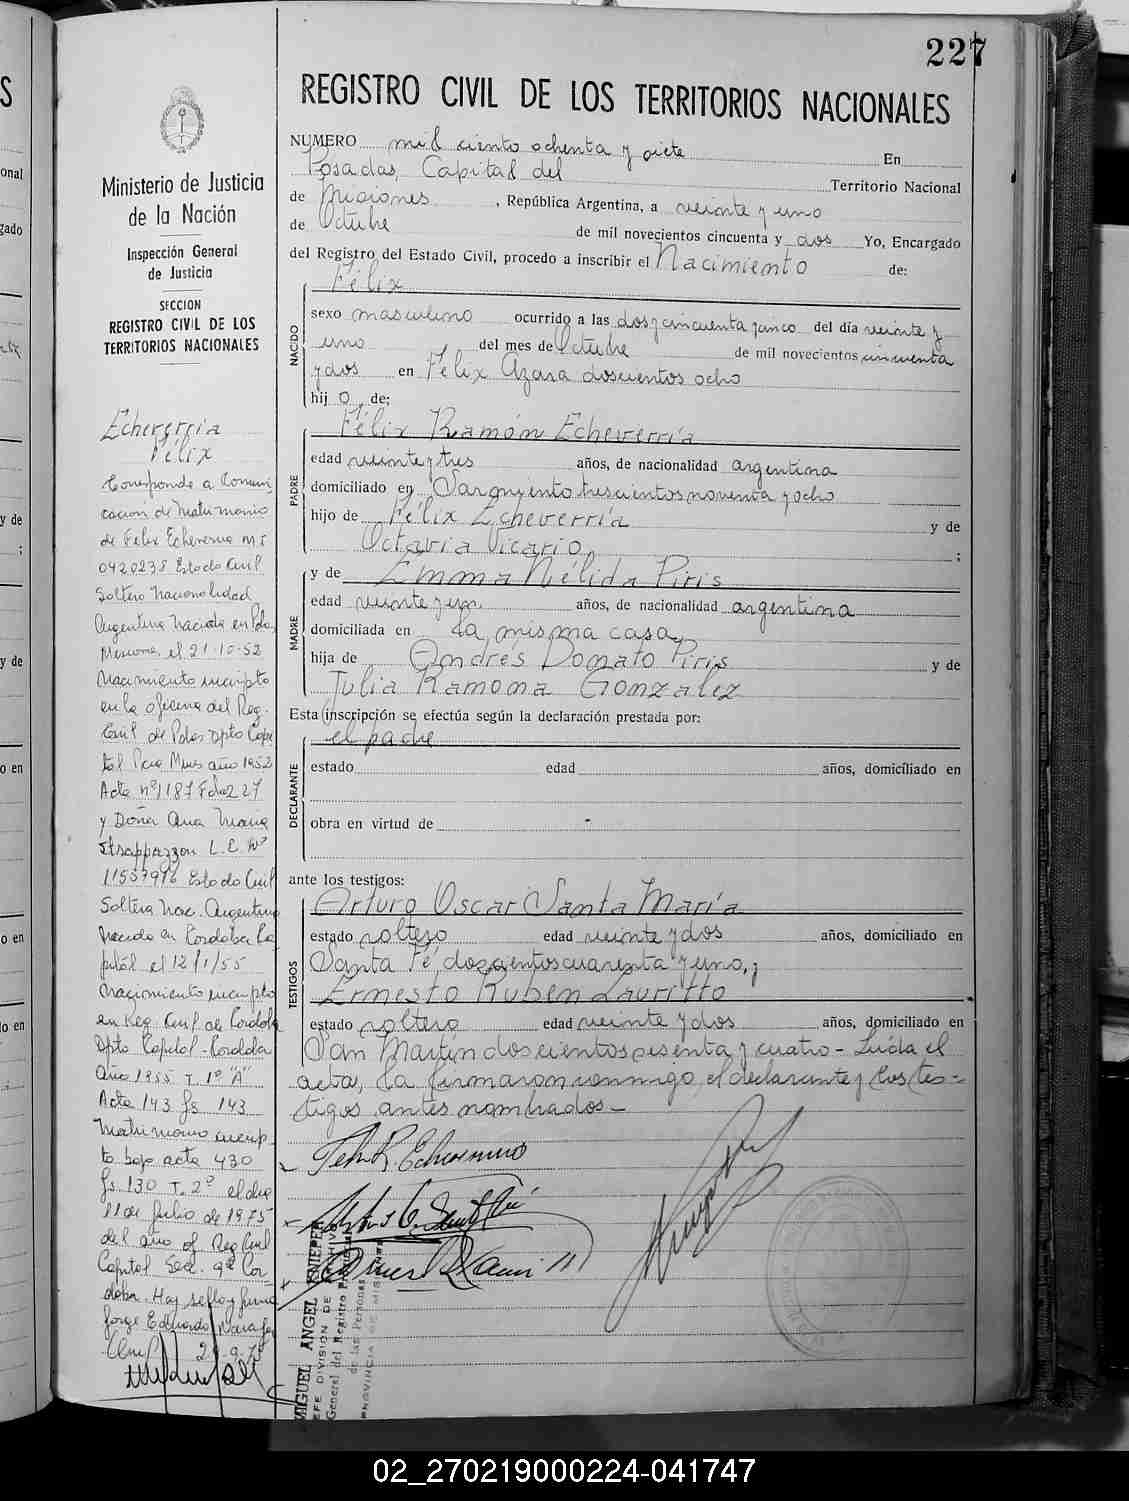 227
REGISTRO CIVIL DE LOS TERRITORIOS NACIONALES
Ministerio de Justicia
de la Nación
Inspección General
de Justicia
SECCION
REGISTRO CIVIL DE LOS
TERRITORIOS NACIONALES
Echeverria
Félix
Corresponde a Comuni
cacion de Matrimonio
de Felix Echeverria M.I
0420238 Estado Civil
Soltero Nacionalidad
Argentina Nacido en Pdas
Misiones, el 21-10-52
Nacimiento inscripto
en la oficina del Reg.
Civil de Pdas Dpto Capi
tal Pcia Mnes año 1952
Acta nº 1187 Fdo 227
y Doña Ana Maria
Strappazzon L.C. Nº
11557916 Estado Civil
Soltera Nac. Argentina
Nacida en Cordoba Ca
pital el 12/1/55
Nacimiento inscripto
en Reg. Civil de Cordoba
Dpto Capital - Cordoba
Año 1955 T 1º "A"
Acta 143 fs 143
Matrimonio inscrip
to bajo acta 430
fs 130 T. 2º el dia
11 de Julio de 1975
del año of Reg Civil
Capital Secc. 9ª Cor
doba. Hay sello y firma
Jorge Eduardo
NUMERO mil ciento ochenta y siete En
Posadas, Capital del Territorio Nacional
de Misiones, República Argentina, a veinte y uno
de Octubre de mil novecientos cincuenta y dos Yo, Encargado
del Registro del Estado Civil, procedo a inscribir el Nacimiento de:
Félix
NACIDO
sexo masculino ocurrido a las dos y cincuenta y cinco del día veinte y
uno del mes de Octubre de mil novecientos cincuenta
y dos en Félix Azara doscientos ocho
hij o, de;
PADRE
Félix Ramón Echeverría
edad veinte y tres años, de nacionalidad argentina
domiciliado en Sarmiento trescientos noventa y ocho
hijo de Félix Echeverría y de
Octavia Vicario ;
MADRE
y de Emma Nélida Piris
edad veinte y un años, de nacionalidad argentina
domiciliada en la misma casa
hija de Andrés Donato Piris y de
Julia Ramona González
Esta inscripción se efectúa según la declaración prestada por:
el padre
DECLARANTE
estado edad años, domiciliado en
obra en virtud de -
ante los testigos:
TESTIGOS
Arturo Oscar Santa María
estado soltero edad veinte y dos años, domiciliado en
Santa Fé, doscientos cuarenta y uno,;
Ernesto Rubén Lauritto
estado soltero edad veinte y dos años, domiciliado en
San Martín doscientos sesenta y cuatro - Leída el
acta, la firmaron conmigo, el declarante y los tes-
tigos antes nombrados-
Felix R. Echeverria
MIGUEL ANGEL ENIEPER
JEFE DIVISION DE ARCHIVO
General del Registro Provincial
de las Personas
PROVINCIA DE MISIONES
02_270219000224-041747